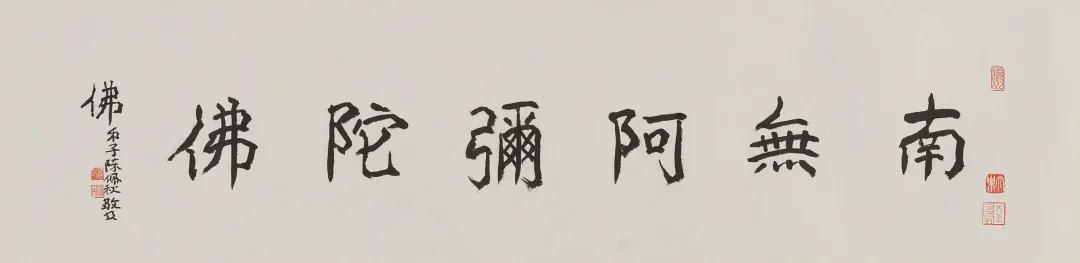 南無阿彌陀佛
佛弟子陈佩秋敬書